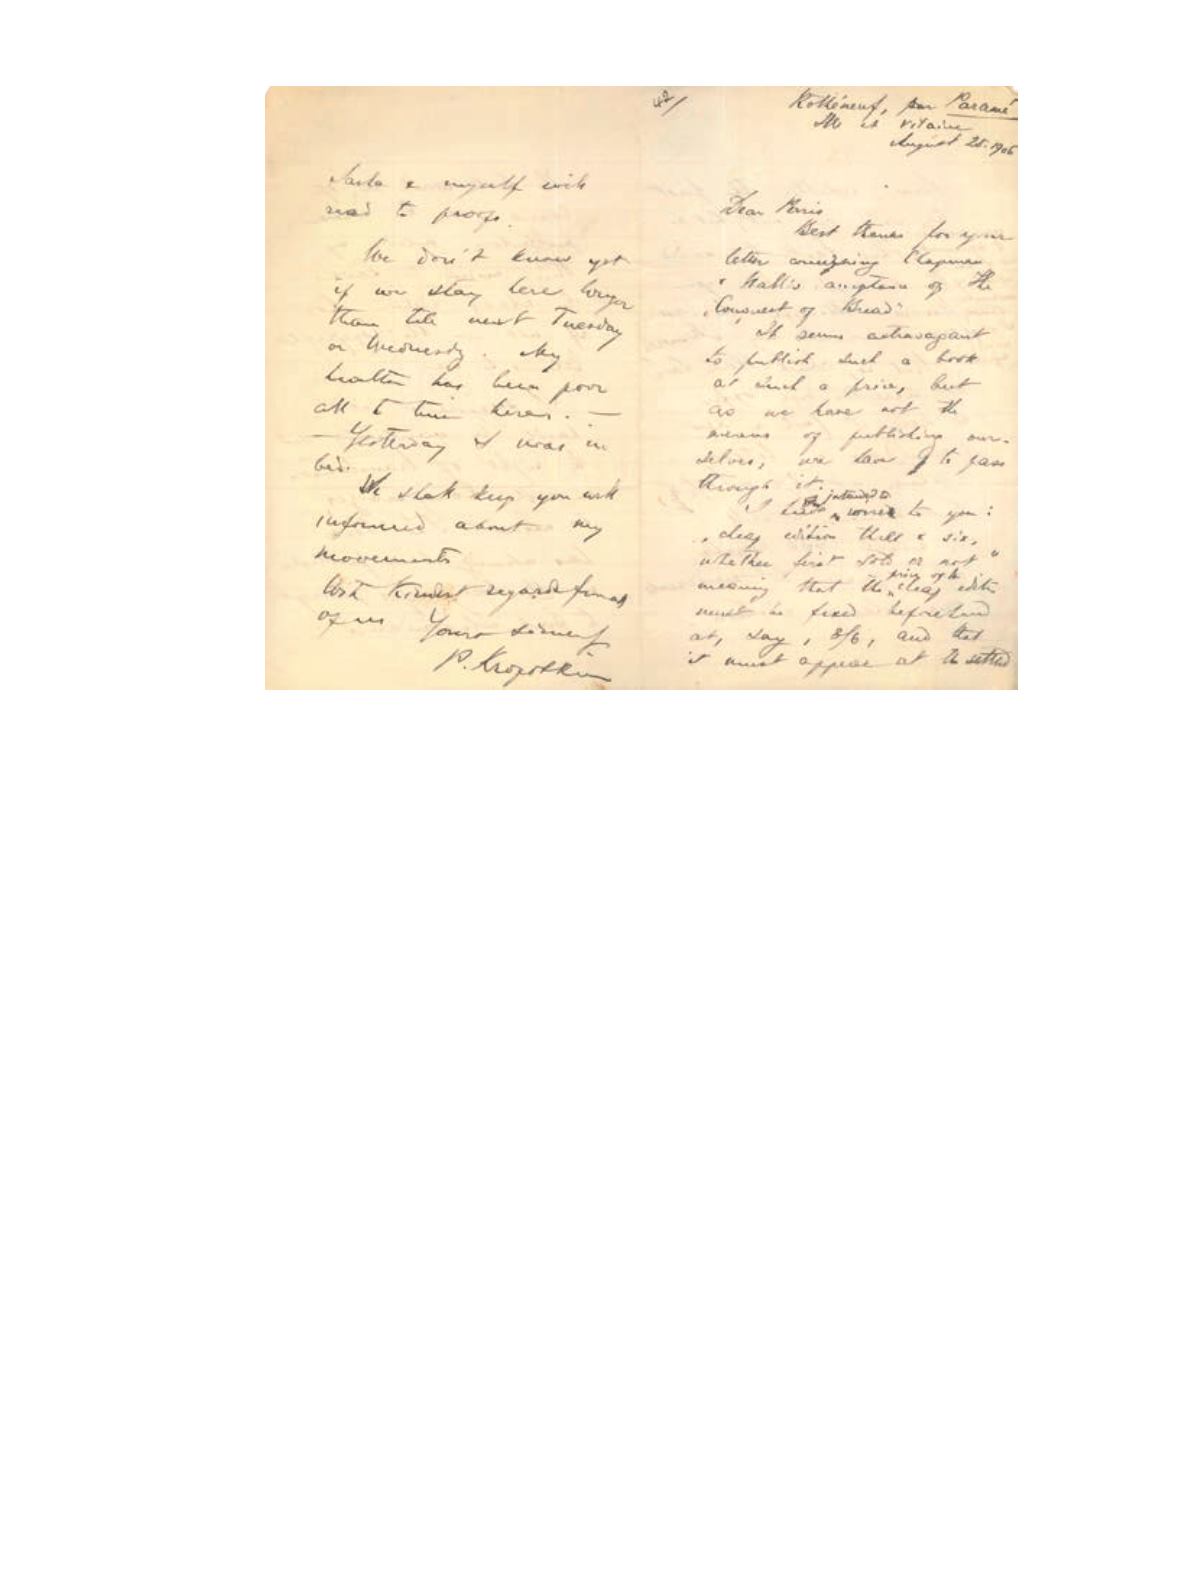 42/
Rothéneuf, par Paramé
Ille et Vilaine
August 25. 1906
Dear Perris
Best thanks for your
letter concerning Chapman
& Hall's acceptance of the
„Conquest of Bread"
It seems extravagant
to publish such a book
at such a price, but
as we have not the
means of publishing our-
selves, we have to pass
through it.
intended to
I to you:
„cheap edition three & six,
whether first sold or not"
price of the
meaning that the cheap editn
must be fixed beforehand
at, say, 3/6, and that
it must appear at the settled
Sasha & myself will
read to proofs.
We don't know yet
if we stay here longer
than till next Tuesday
or Wednesday. My
health has been poor
all to time here. —
— Yesterday I was in
bed.
We shall keep you well
informed about my
movements
With kindest regards from all
of us Yours sincerely
P. Kropotkin